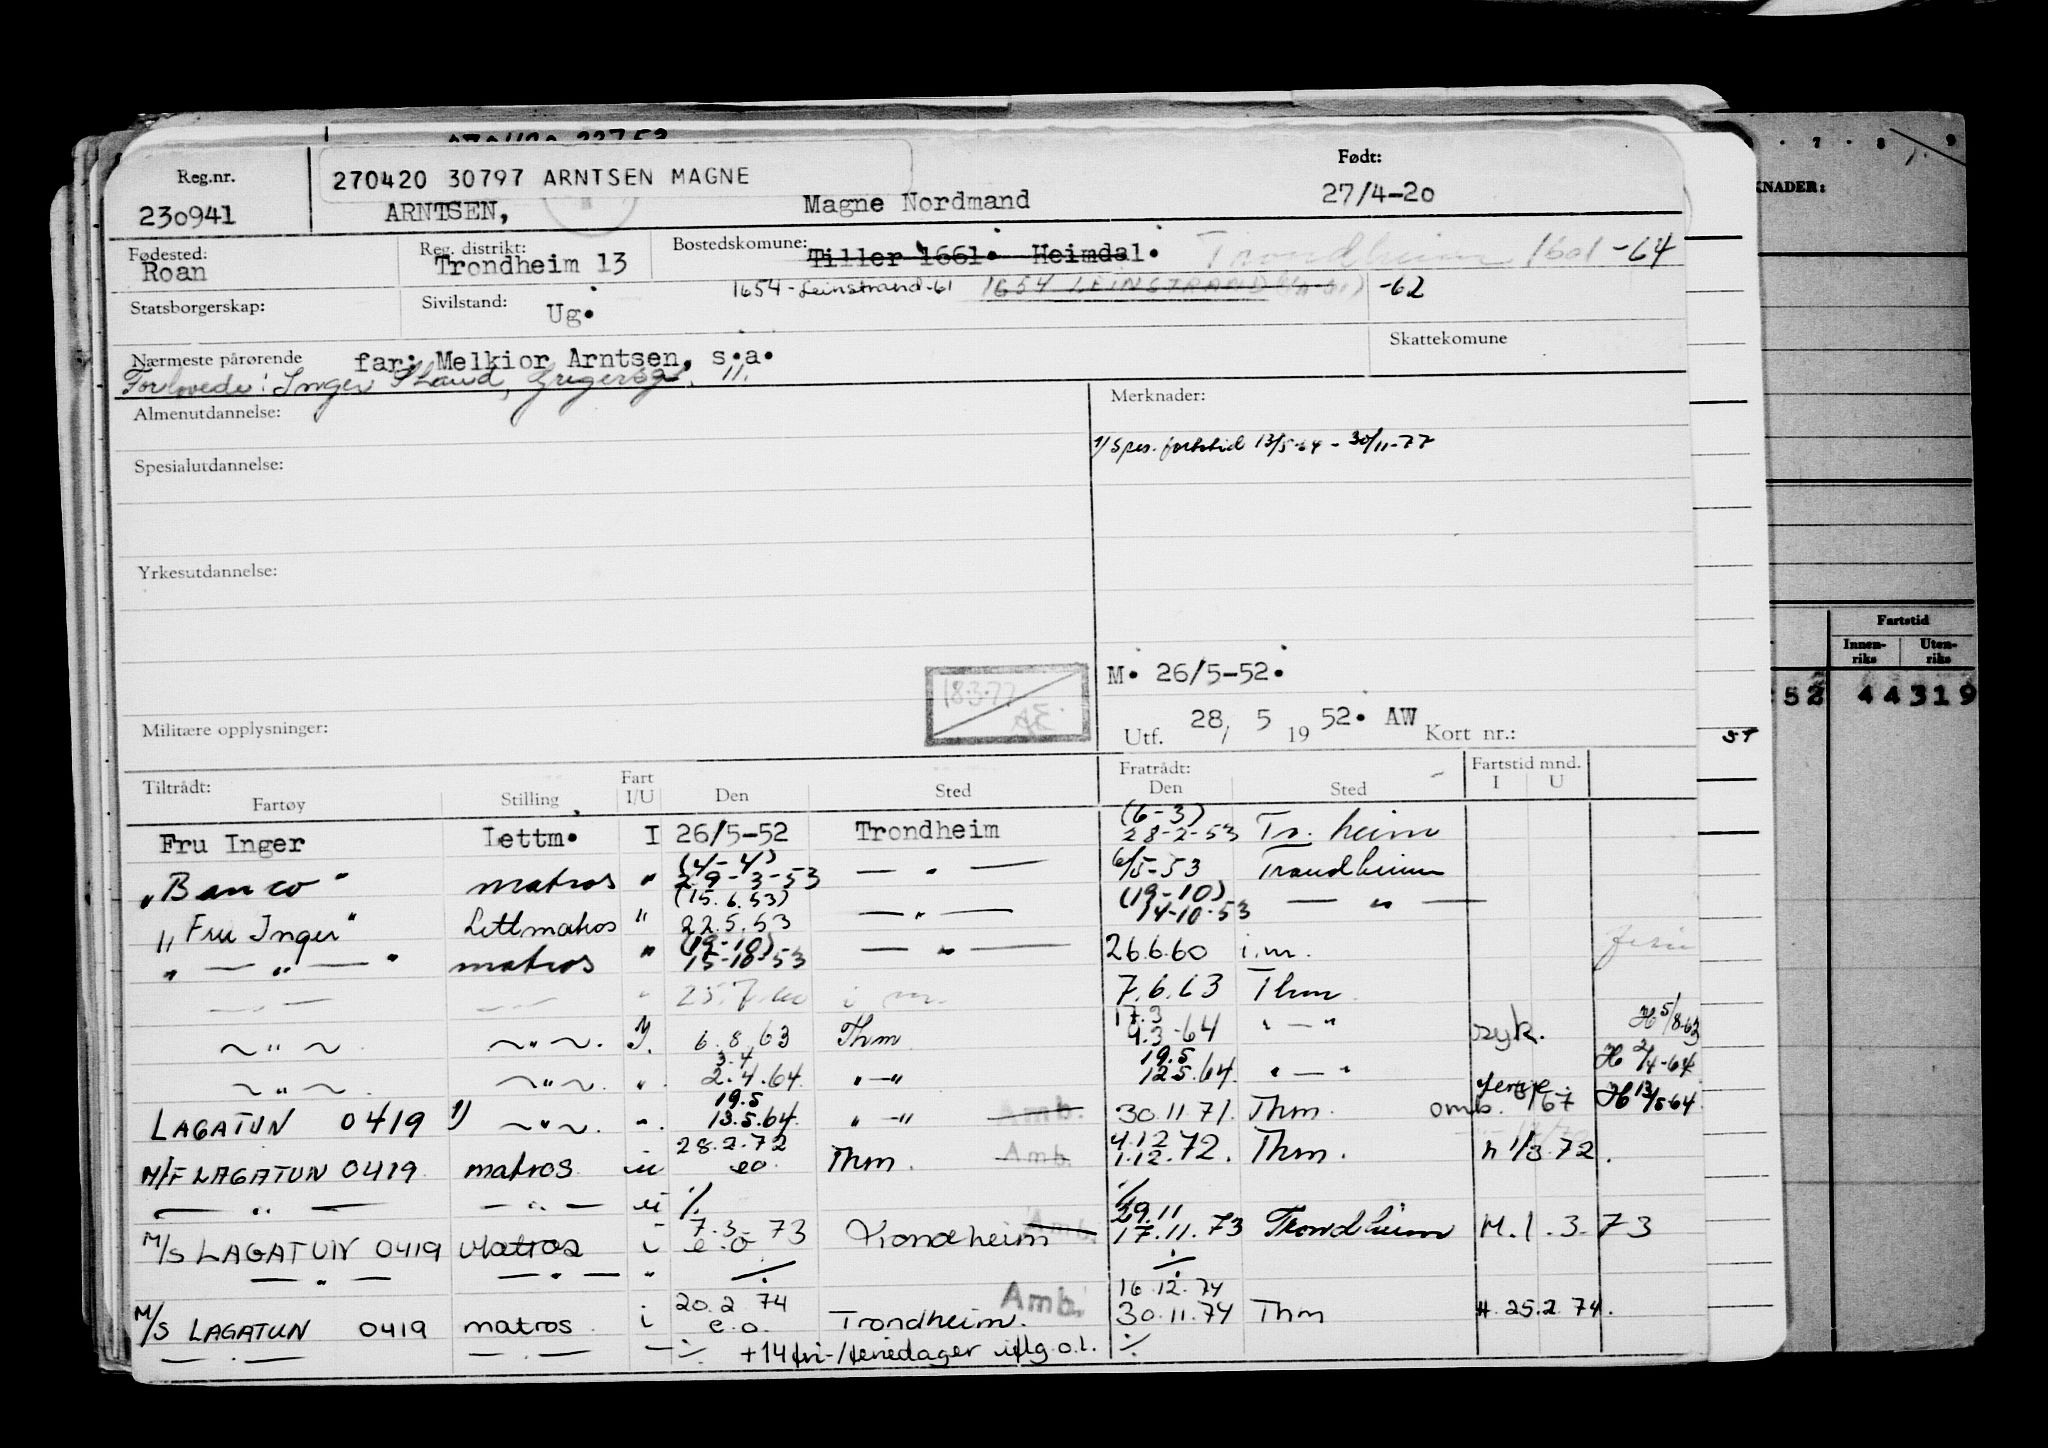 Reg.nr. 270420 30797 ARNTSEN MAGNE Født:
230941 ARNTSEN, Magne Nordmand 27/4-20
Fødested: Reg. distrikt: Bostedskomune:
Roan Trondheim 13 Tiller 1661. Heimdal. Trondheim 1601 -64
1654 - Leinstrand-61 1654 LEINSTRAND -62
Statsborgerskap: Sivilstand: Ug.
Nærmeste pårørende far: Melkior Arntsen, s.a. Skattekomune
Forlovede: Inger
Almenutdannelse: Merknader:
1) Spes. fartstid 13/5-64 - 30/11-77
Spesialutdannelse:
Yrkesutdannelse:
M. 26/5-52.
18.3.77
AE
Militære opplysninger: Utf. 28/ 5 19 52. AW Kort nr.:
Tiltrådt: Fart Fratrådt: Fartstid mnd.
Fartøy Stilling I/U Den Sted Den Sted I U
(6-3)
Fru Inger Lettm. I 26/5-52 Trondheim 28-2-53 Tr. heim
(4-4)
"Banco" matros " 29-3-53 — " — 6/5-53 Trondheim
(15.6.53) (19-10)
"Fru Inger" Lettmatros " 22.5.53 — " — 14-10-53 — " —
(19-10)
" — " — " matros " 15-10-53 — " — 26.6.60 i.m. ferie
— — — — " 25.7.60 i m. 7.6.63 Thm.
17.3
~ " ~ ~ " ~. I. 6.8.63 Thm 4.3-64 " — " syk. H 5/8-63
3.4 19.5
~ " ~ ~ " ~. " 2.4.64. " — " 12.5.64. " — " H 2/4-64
19.5
LAGATUN 0419 1) ~ " ~. " 13.5.64. " — " Amb. 30.11.71. Thm. omb. /67 H 13/5-64.
28.2.72 4.12
M/F LAGATUN 0419. matros. eo. Thm. Amb. 1.12.72. Thm. h 1/3.72.
— " — — " — ⁒ ⁒
7.3-73 29.11
M/S LAGATUN 0419 Matros i e.o Trondheim Amb. 17.11.73 Trondheim M. 1.3.73
— " — — " — " ⁒ ⁒
20.2.74 16.12.74
M/S LAGATUN 0419 matros i e.o. Trondheim. Amb. 30.11.74 Thm H. 25.2.74.
— " — — . — — ⁒ +14 fri-/feriedager iflg. o.l. ⁒
7 8 9
KNADER:
Fartstid
Innen-
riks
Uten-
riks
52 44319